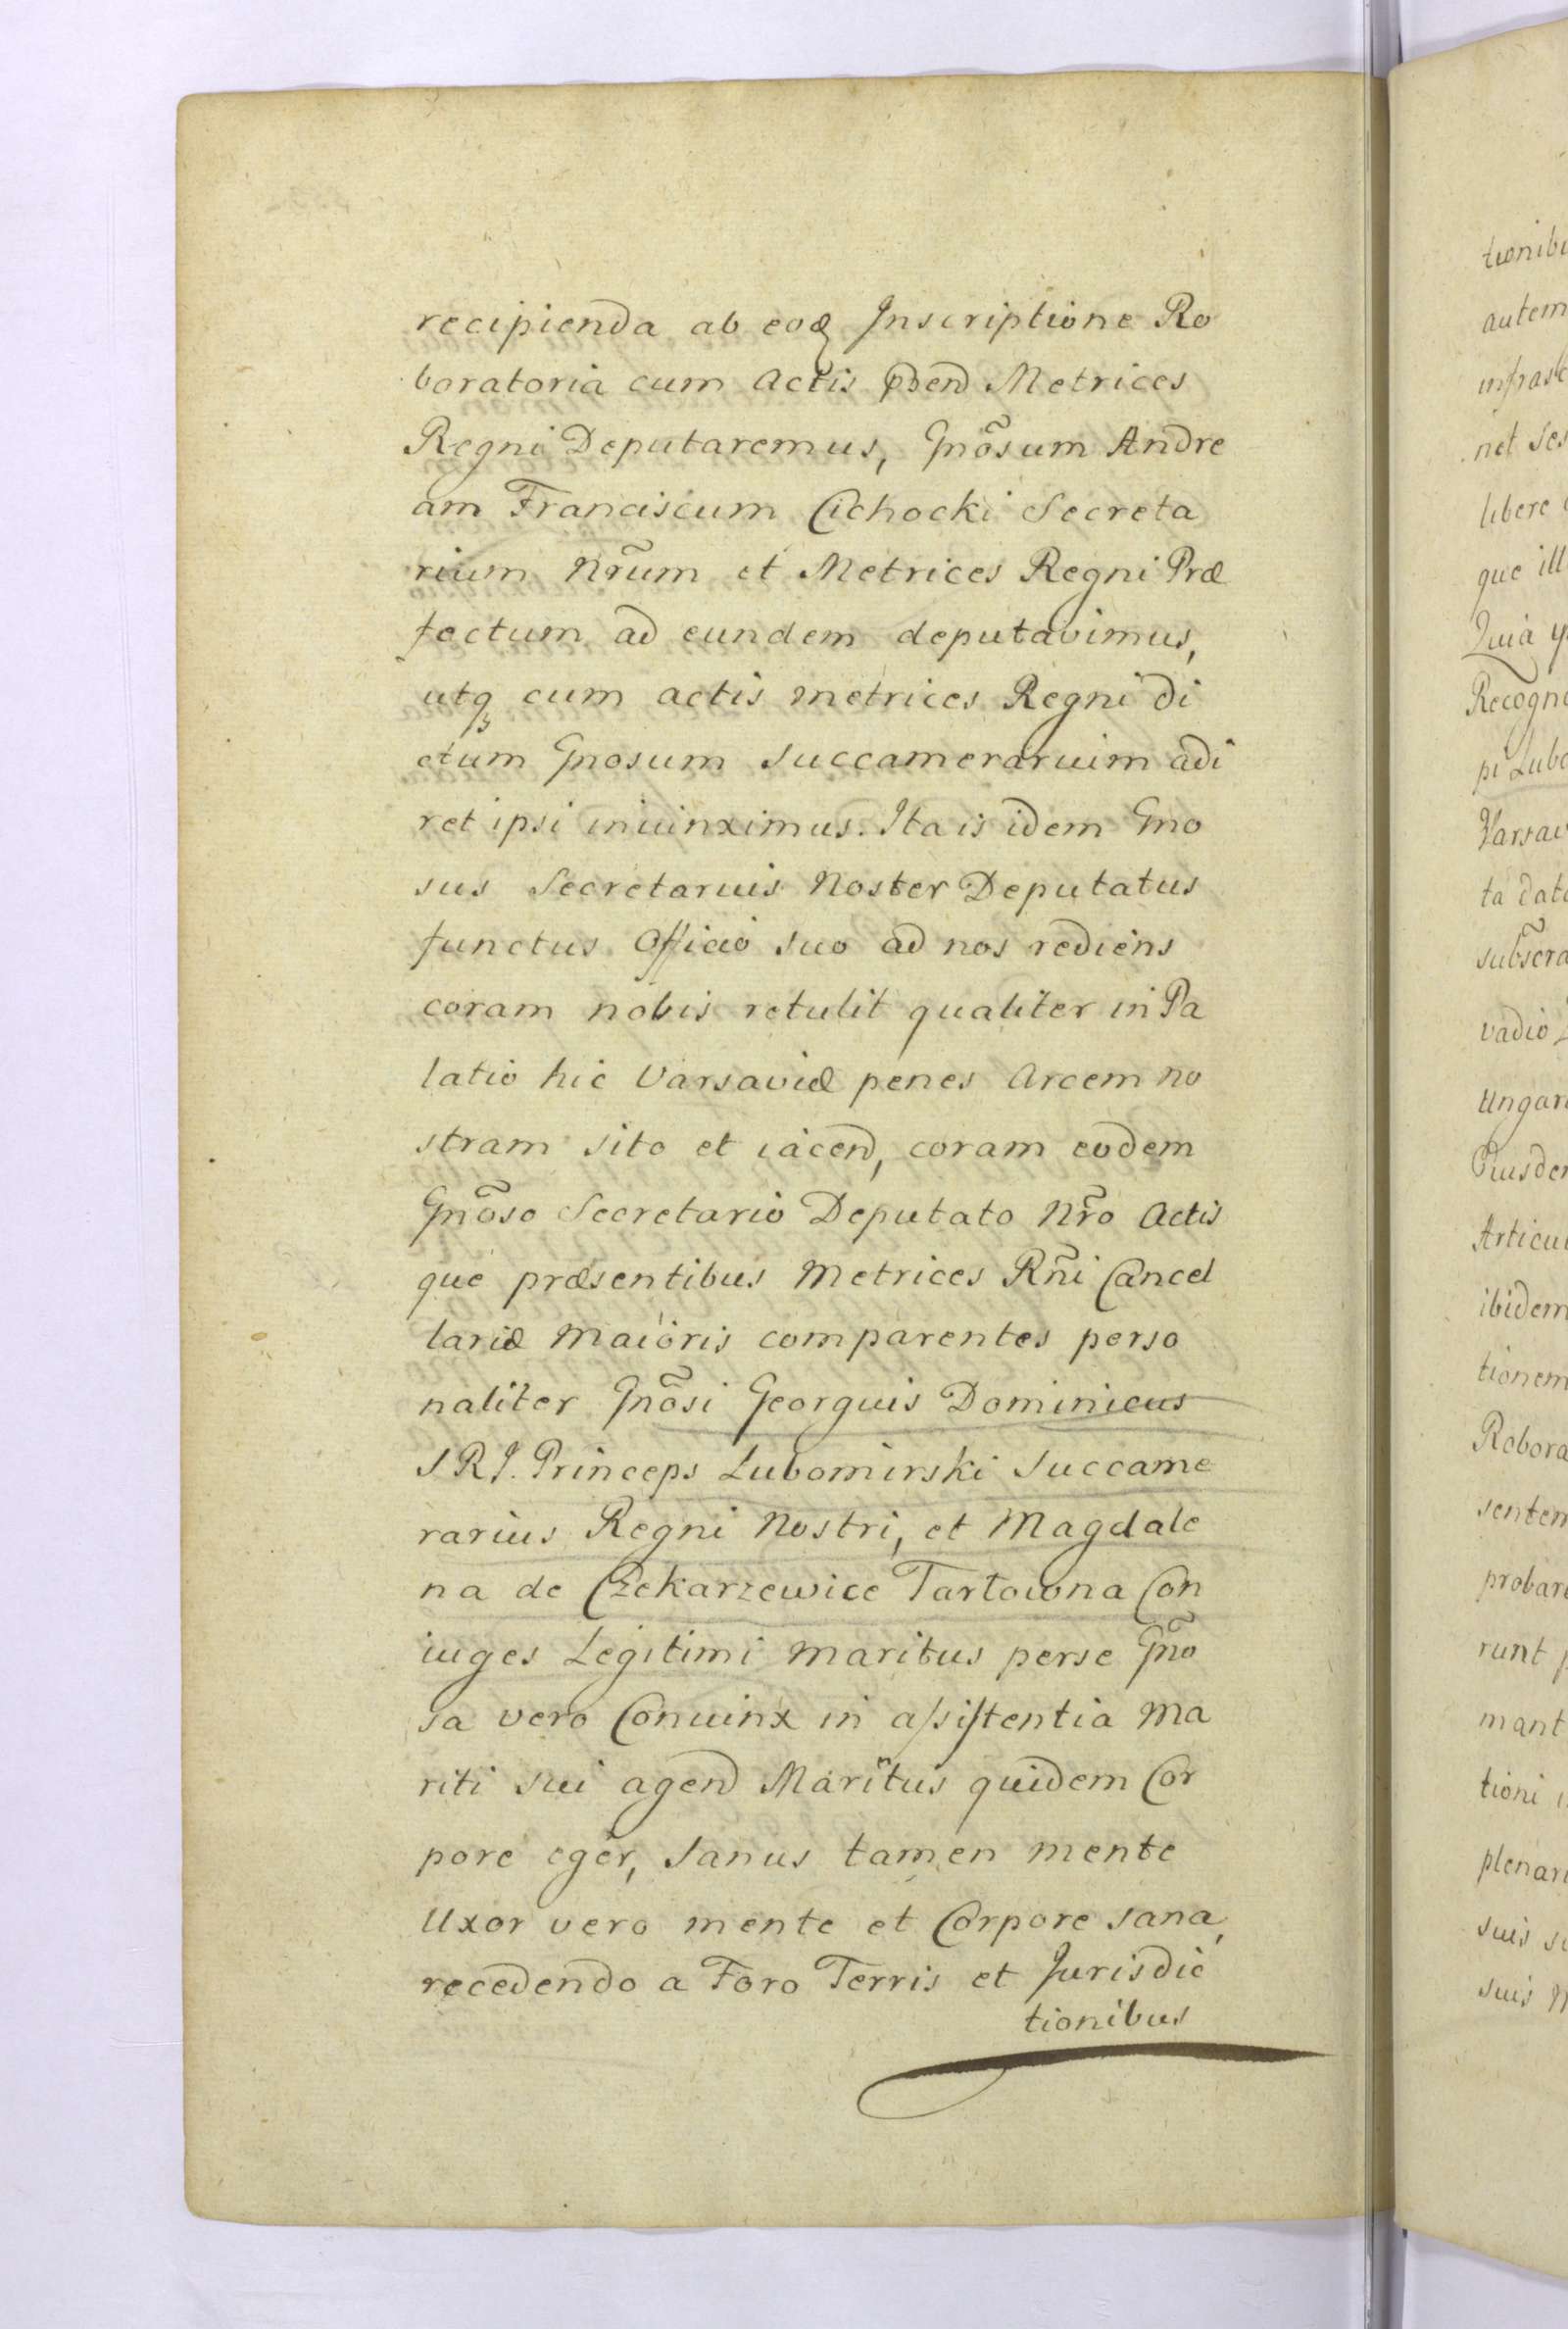 recipienda ab eoꝗ Inscriptione Ro
boratoria cum Actis pbend Metrices
Regni Deputaremus, Gnõsum Andre
am Franciscum Cichocki Secreta
rium Nr̃um et Metrices Regni Præ
fectum ad eundem deputavimus,
utqꝫ cum actis metrices Regni di
ctum Gnosum Succamerarium adi
ret ipsi iniuinximus. Ita is idem Gno
sus Secretarius Noster Deputatus
functus Officio suo ad nos rediens
coram nobis retulit qualiter in Pa
latio hic Varsaviæ penes Arcem no
stram sito et iacend, coram eodem
Gnõso Secretario Deputato Nr̃o Actis
que præsentibus Metrices Rñi Cancel
lariæ Maioris comparentes perso
naliter Gnõsi Georgius Dominicus
S R I. Princeps Lubomirski Succame
rarius Regni Nostri, et Magdale
na de Czekarzewice Tartowna Con
iuges Legitimi Maritus perse Gnõ
sa vero Conuinx in assistentia Ma
riti sui agend Maritus quidem Cor
pore eger, Sanus tamen mente
Uxor vero mente et Corpore sana,
recedendo a Foro Terris et Jurisdic
tionibus
tionibu
autem
net ses
libere
que ill
Quia
Recogn
pi Lubo
Varsav
ta data
vadio
Ungar
Eiusdem
Articu
ibidem
tionem
Robora
sentem
probar
runt
mant
tioni
plenari
suis
suis